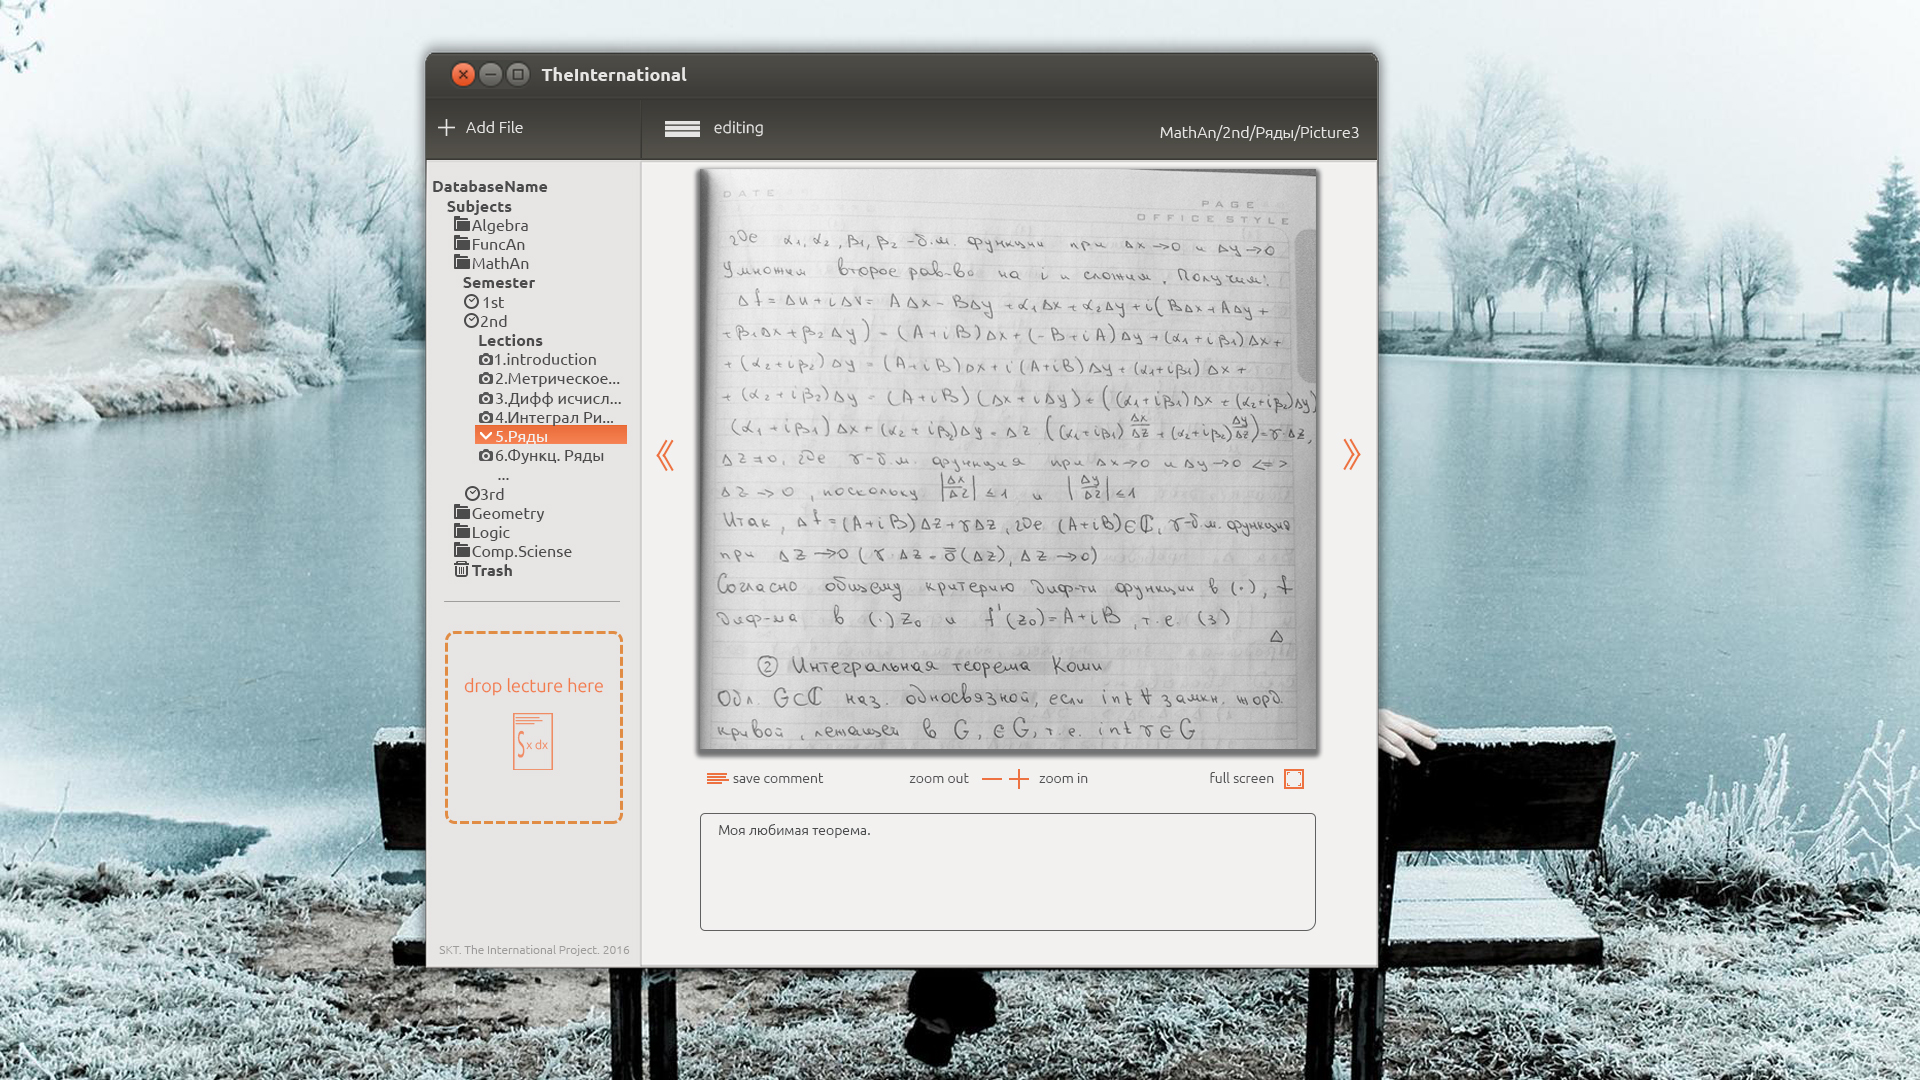 TheInternational
Add File
editing
MathAn/2nd/Ряды/Picture3
DatabaseName
Subjects
Algebra
FuncAn
MathAn
Semester
1st
2nd
Lections
1.introduction
2.Метрическое...
3.Дифф исчисл...
4.Интеграл Ри...
5.Ряды
6.Функц. Ряды
...
3rd
Geometry
Logic
Comp.Sciense
Trash
drop lecture here
∫x dx
SKT. The International Project. 2016
DATE
PAGE
OFFICE STYLE
где α₁, α₂, β₁, β₂ -б.м. функции при Δx→0 и Δy→0
Умножим второе рав-во на i и сложим. Получим:
Δf = Δu + iΔv = AΔx - BΔy + α₁Δx + α₂Δy + i(BΔx + AΔy +
+ β₁Δx + β₂Δy) = (A+iB)Δx + (-B+iA)Δy + (α₁+iβ₁)Δx +
+ (α₂+iβ₂)Δy = (A+iB)Δx + i(A+iB)Δy + (α₁+iβ₁)Δx +
+ (α₂+iβ₂)Δy = (A+iB)(Δx+iΔy) + ((α₁+iβ₁)Δx + (α₂+iβ₂)Δy)
(α₁+iβ₁)Δx + (α₂+iβ₂)Δy = Δz ((α₁+iβ₁) Δx/Δz + (α₂+iβ₂) Δy/Δz) = γ·Δz,
Δz≠0, где γ-б.м. функция при Δx→0 и Δy→0 <=>
Δz→0, поскольку |Δx/Δz| ≤ 1 и |Δy/Δz| ≤ 1
Итак, Δf = (A+iB)Δz + γΔz, где (A+iB)∈ℂ, γ-б.м. функция
при Δz→0 (γ·Δz = ō(Δz), Δz→0)
Согласно общему критерию диф-ти функции в (·), f
диф-ма в (·) z₀ и f'(z₀) = A+iB, т.е. (3)
△
② Интегральная теорема Коши
Обл. G⊂ℂ наз. односвязной, если int ∀ замкн. жорд.
кривой, лежащей в G, ∈G, т.е. int γ∈G
save comment
zoom out
zoom in
full screen
Моя любимая теорема.